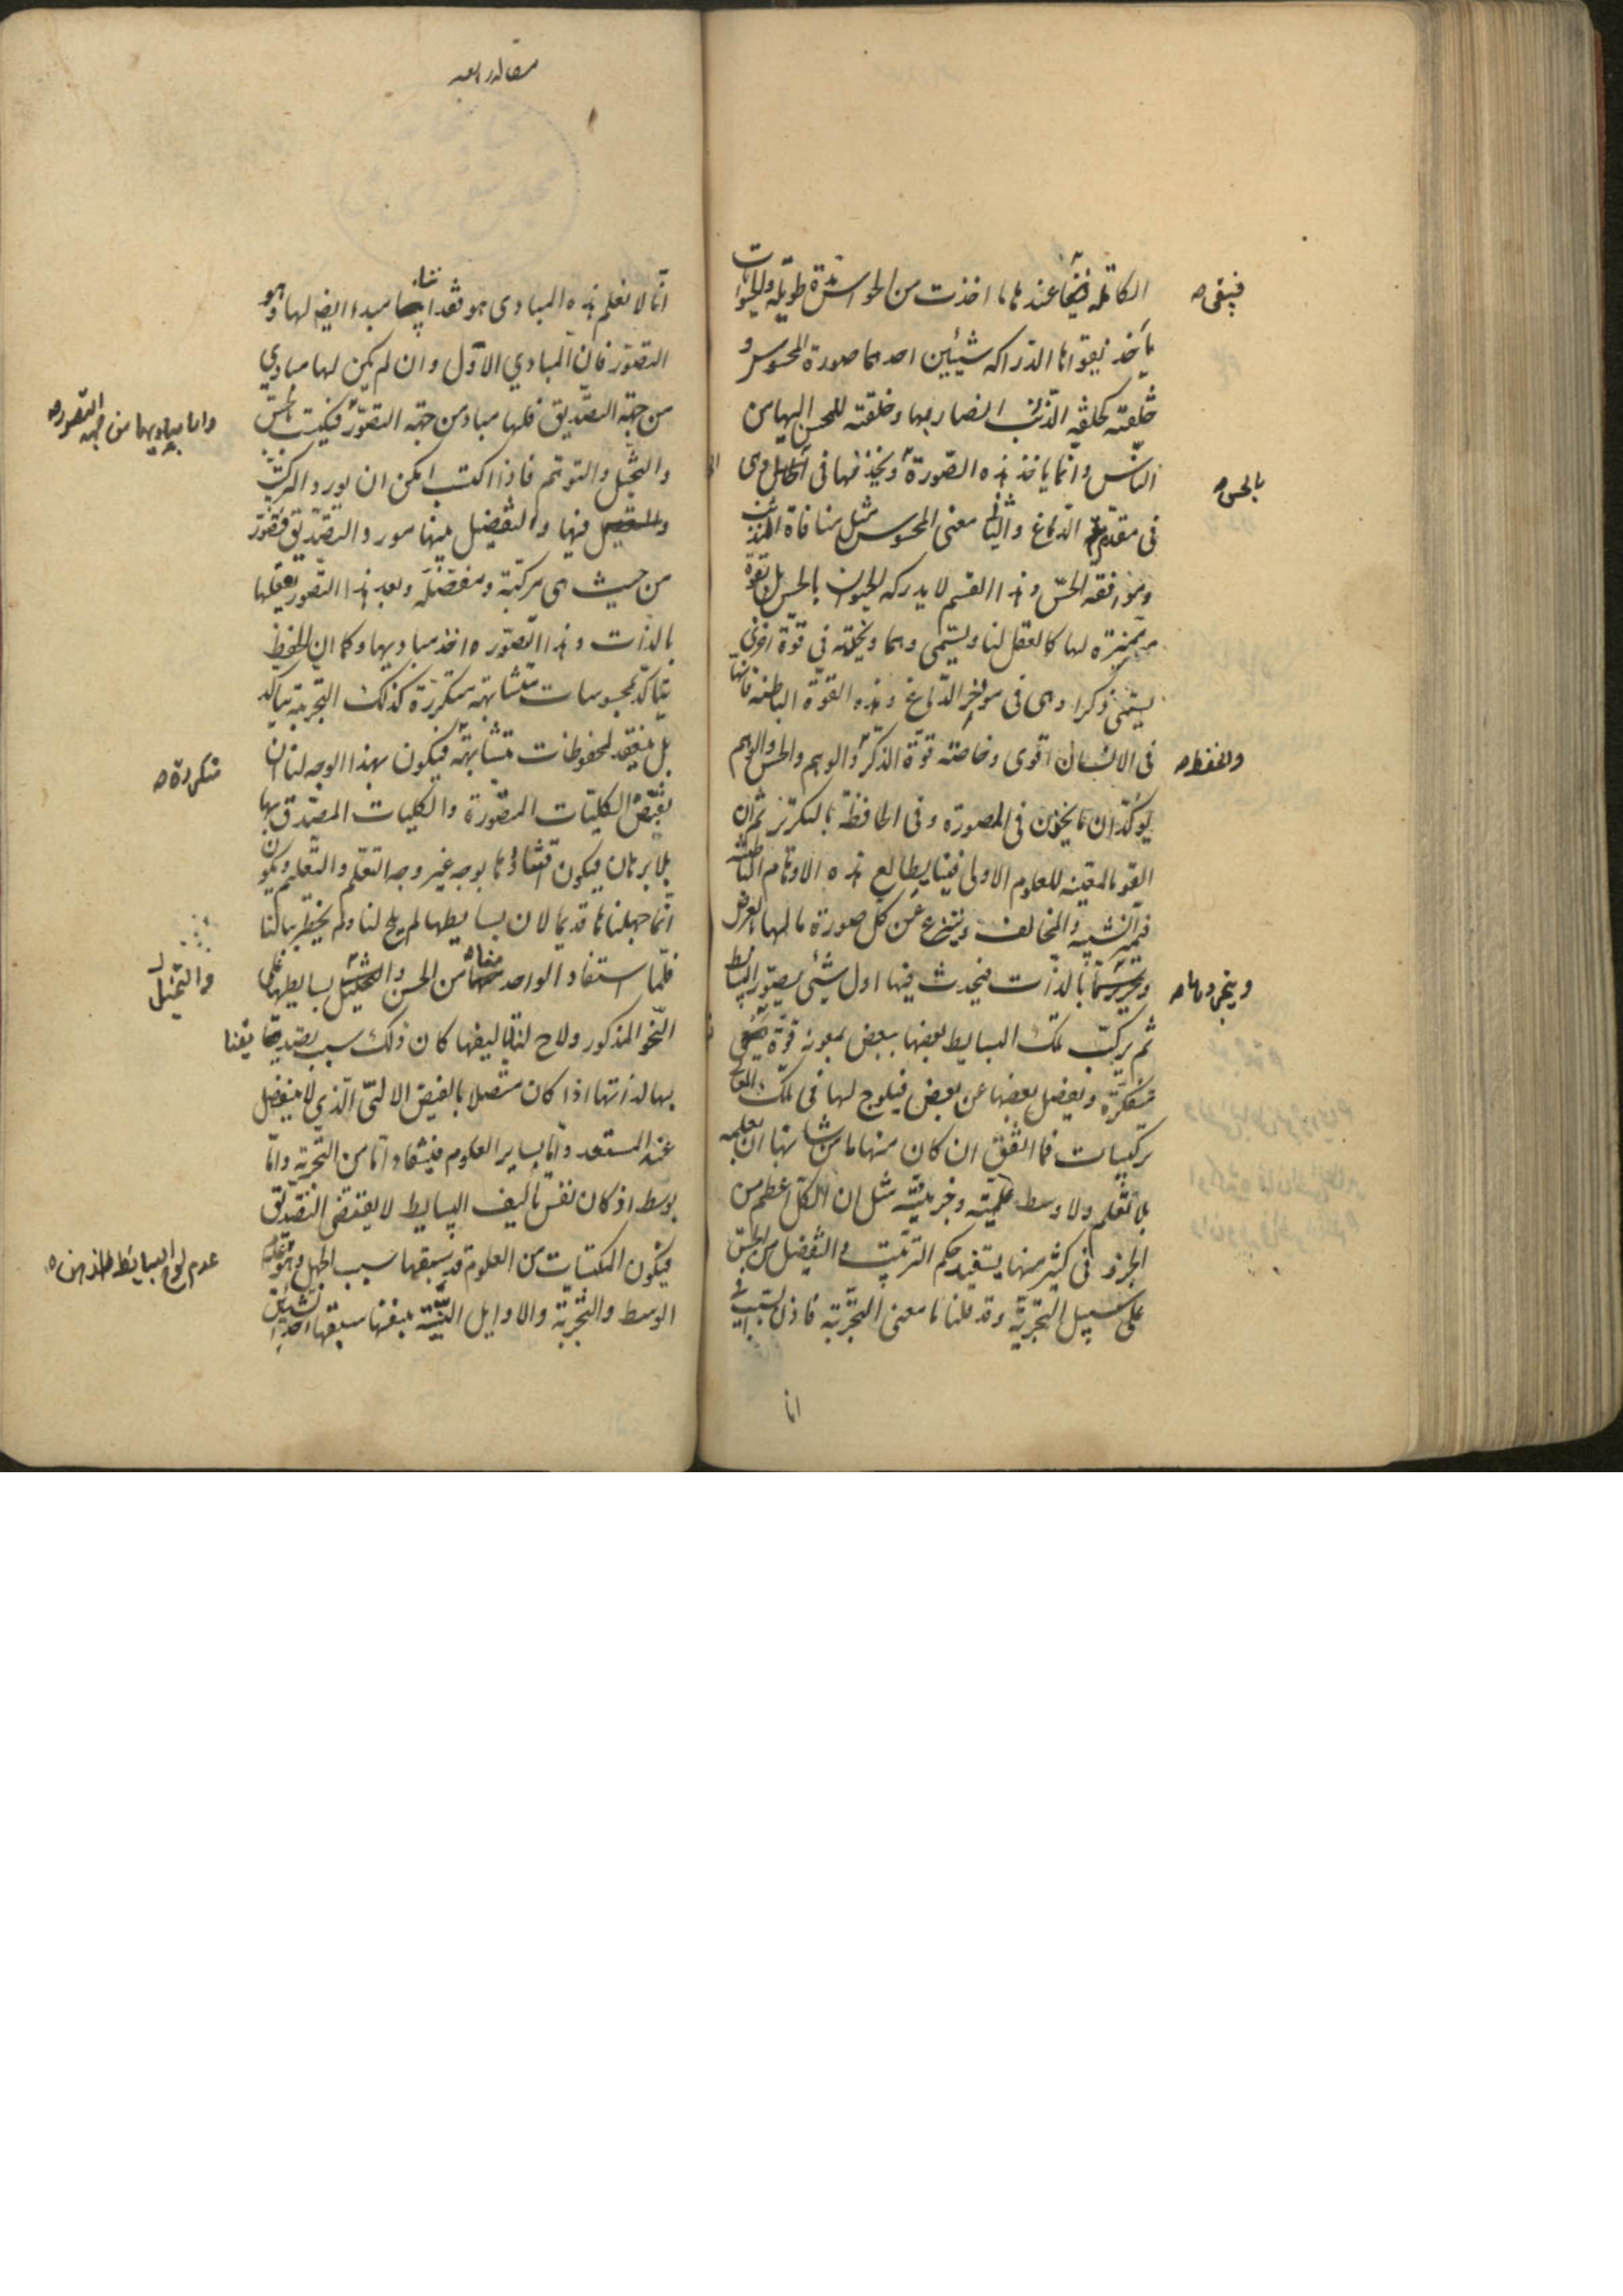 الكاملة فيبقى عندها ما اخذت من الحواس مدة طويلة والحيوانات
فيبقى
يأخذ بقواها الدراكه شيئين احدهما صورة المحسوس و
خلقته كخلقة الذئب الضار بها وخلقته للمحسن اليها من
الناس وانما ياخذ هذه الصورة ويخذنها فى الخيال وهى
بالحس
فى مقدم الدماغ والثانى معنى المحسوس مثل منافاة الذئب
وموافقه الحسّ وهذا القسم لا يدركه الحيوان بالحس بل بقوة
مميزة لها كالعقل لنا ويسمى وهما ويخزنه فى قوة اخرى
يسمى ذكرا وهى فى مؤخر الدماغ وهذه القوة الباطنه فانها
فى الانسان اقوى وخاصته قوة الذكر والوهم والحس والوهم
والحفظ
يؤكدان ما يخزن فى المصورة وفى الحافظة بالتكرر ثم ان
القوة المعينه للعلوم الاولى فينا يطالع هذه الاوهام الباطنة
فيميز الشبيه والمخالف وينتزع عن كل صورة ما لها بالعرض
ويجردها بالذات فيحدث فيها اول شئى يصور البسايط
ويجردها
ثم يركب تلك البسايط بعضها ببعض بمعونة قوة تسمى
مفكرة ويفصل بعضها عن بعض فيلوح لها فى تلك المعانى
تركيبات فما اتفق ان كان منها ما من شانها ان نعلمه
بلا تعلم ولا وسط علميته وخبر يقينه مثل ان الكل اعظم من
الجزء و فى كثير منها يستفيد حكم التركيب والتفصيل من الحس
على سبيل التجربة وقد قلنا ما معنى التجربة فاذن السبب فى
انا
انا لا نعلم هذه المبادى هو فقداننا مبدء ايضا لها وهو
التصور فان المبادي الاول وان لم يكن لها مبادي
من جهة التصديق فلها مباد من جهة التصور فيكتسب بالحسّ
واما مباديها من جهه التصور
والتخيل والتوهم فاذا اكتسب امكن ان يورد التركيب
والتفصيل فيها والتفضيل بينها مورد التصديق فتصور
من حيث هى مركبة ومفصلة وبعد هذا التصور تعقلها
بالذات وهذا التصور واخذ مباديها وكما ان الحفظ
يتأكد بمحسوسات متشابهة متكررة كذلك التجربة يتأكد
بل ينعقد بمحفوظات متشابهة فيكون بهذا الوجه لنا ان
متكررة
نقتنص الكليات المتصورة والكليات المصدق بها
بلا برهان فيكون اقتناؤها بوجه غير وجه التعلم والتعليم ويكون
انما جهلناها قديما لان بسايطها لم يلح لنا ولم يخطر ببالنا
فلما استفاد الواحد منا من الحس والتخيل بسايطها على
والتخيل
النحو المذكور ولاح لنا تاليفها كان ذلك سبب تصديقنا
بها لذاتها اذا كان متصلا بالفيض الالهى الذي لا ينفصل
عنه المستعد واما ساير العلوم فيستفاد اما من التجربة واما
بوسط اذ كان نفس تاليف البسايط لا يقتضى التصديق
فيكون المكتسبات من العلوم قد يسبقها سبب الجهل وهو فقد
عدم لوح البسايط للذهن
الوسط والتجربة والاوايل البينة بنفسها سبقها احد الشيئين